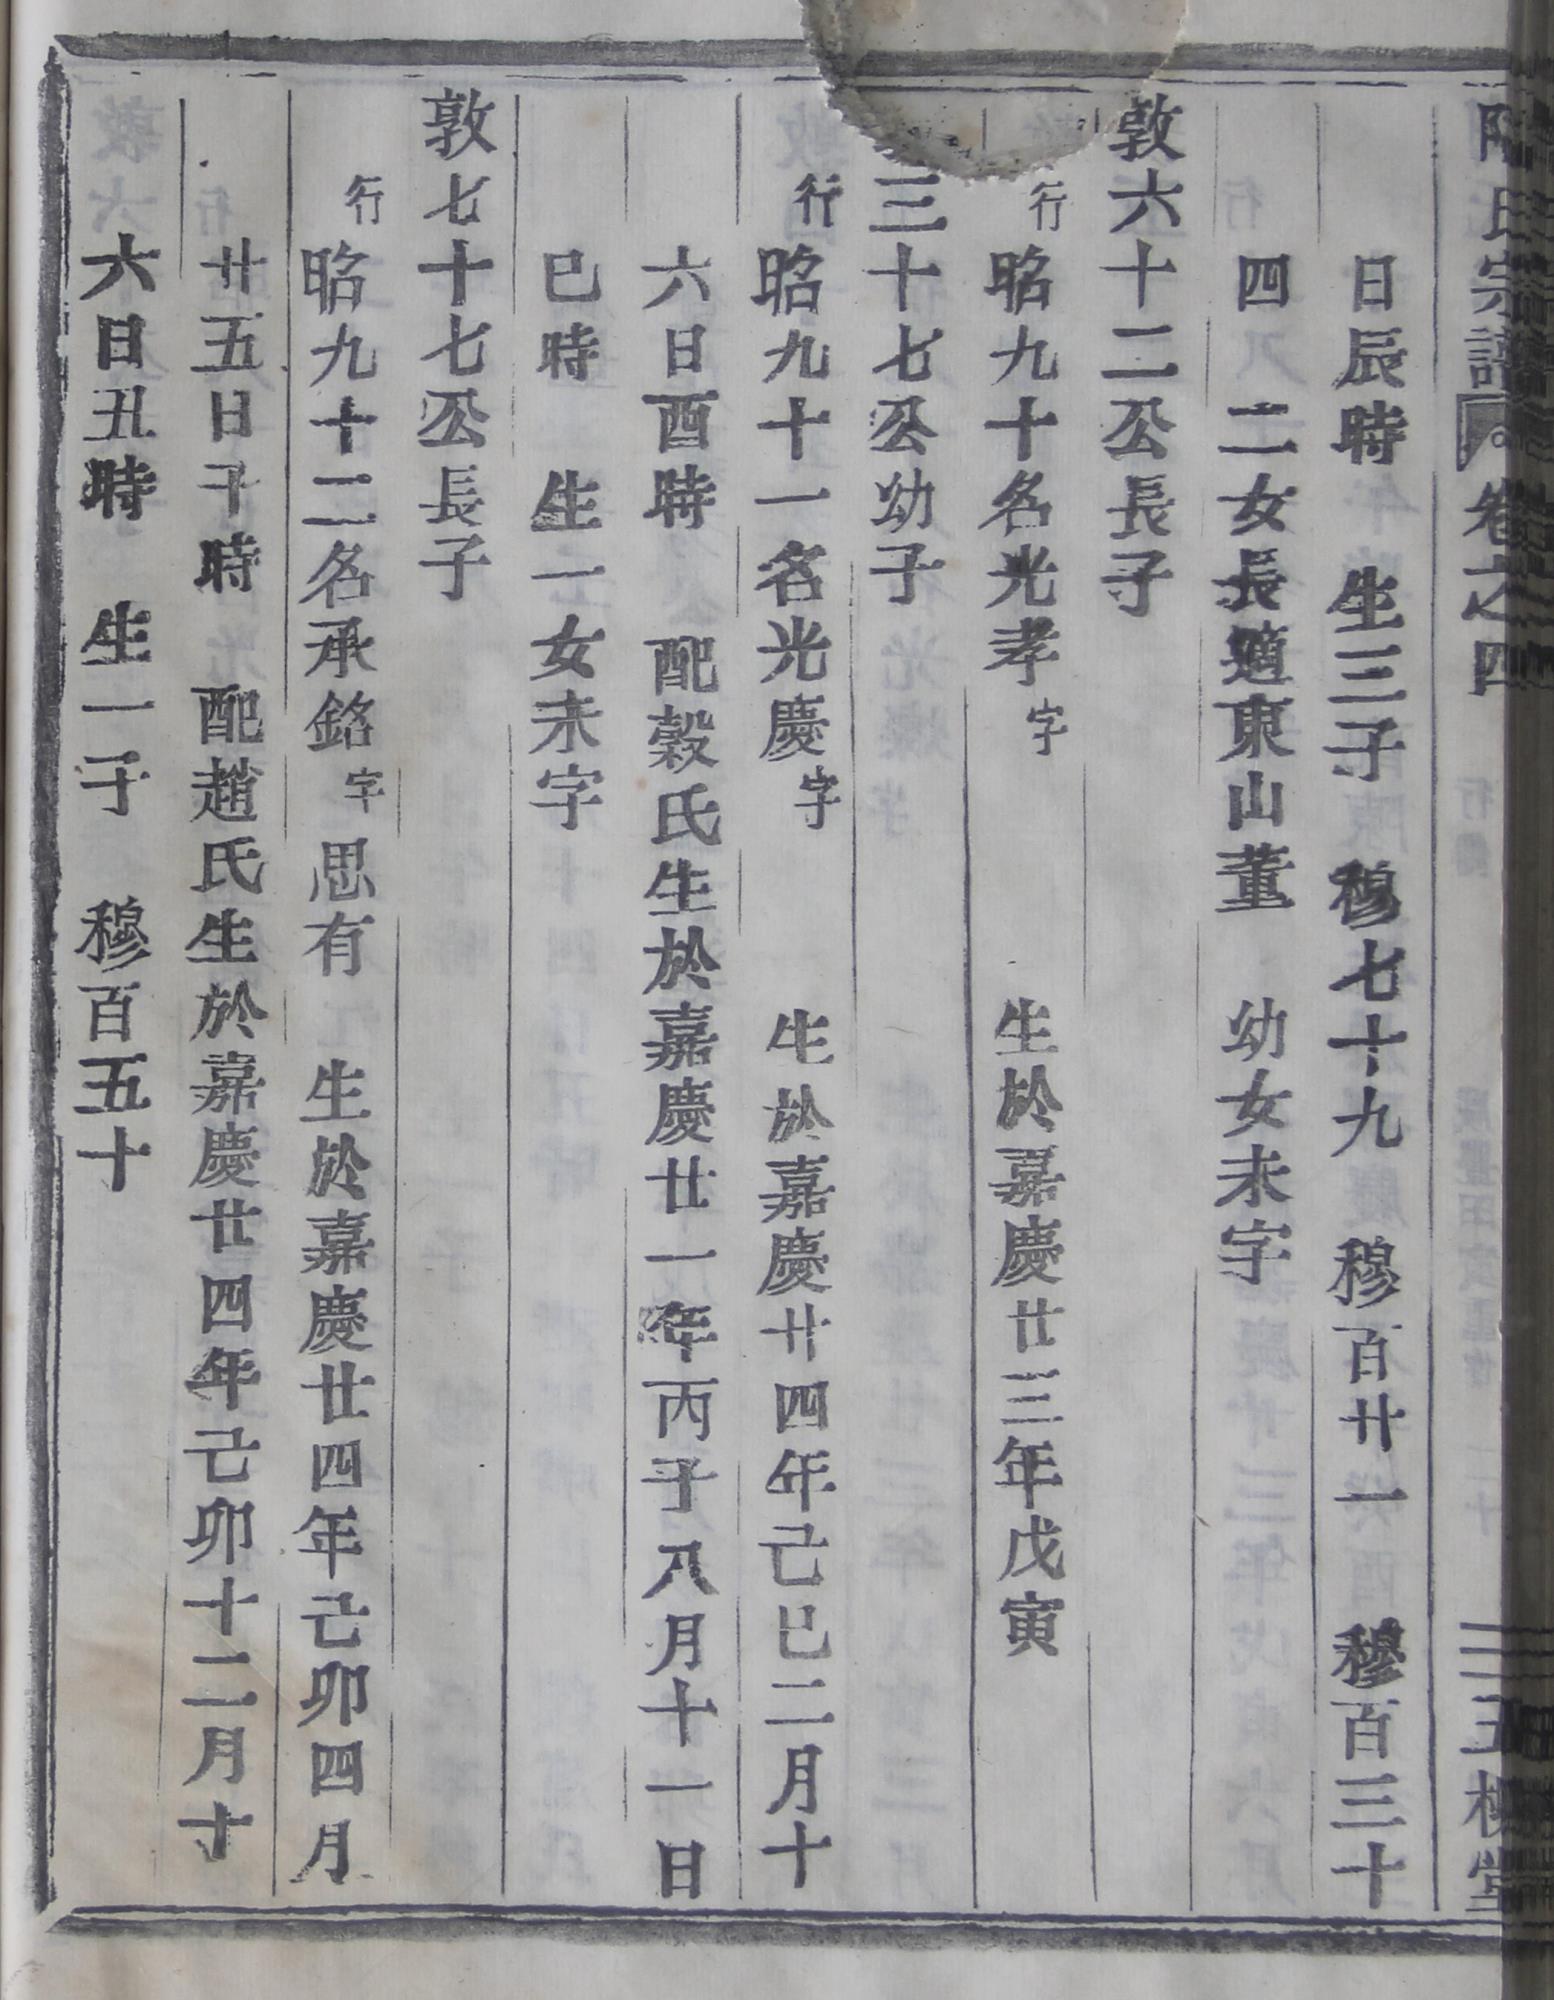 氏宗譜 卷之四 五桂堂
日辰時 生三子 穆七十九 穆百廿一 穆百三十
四 二女長適東山董 幼女未字
敦六十二公長子
行昭九十名光孝字 生於嘉慶廿三年戊寅
三十七公幼子
行昭九十一名光慶字 生於嘉慶廿四年己巳二月十
六日酉時 配榖氏生於嘉慶廿一年丙子八月十一日
巳時 生一女未字
敦七十七公長子
行昭九十二名承銘字思有 生於嘉慶廿四年己卯四月
廿五日子時 配趙氏生於嘉慶廿四年己卯十二月十
六日丑時 生一子 穆百五十